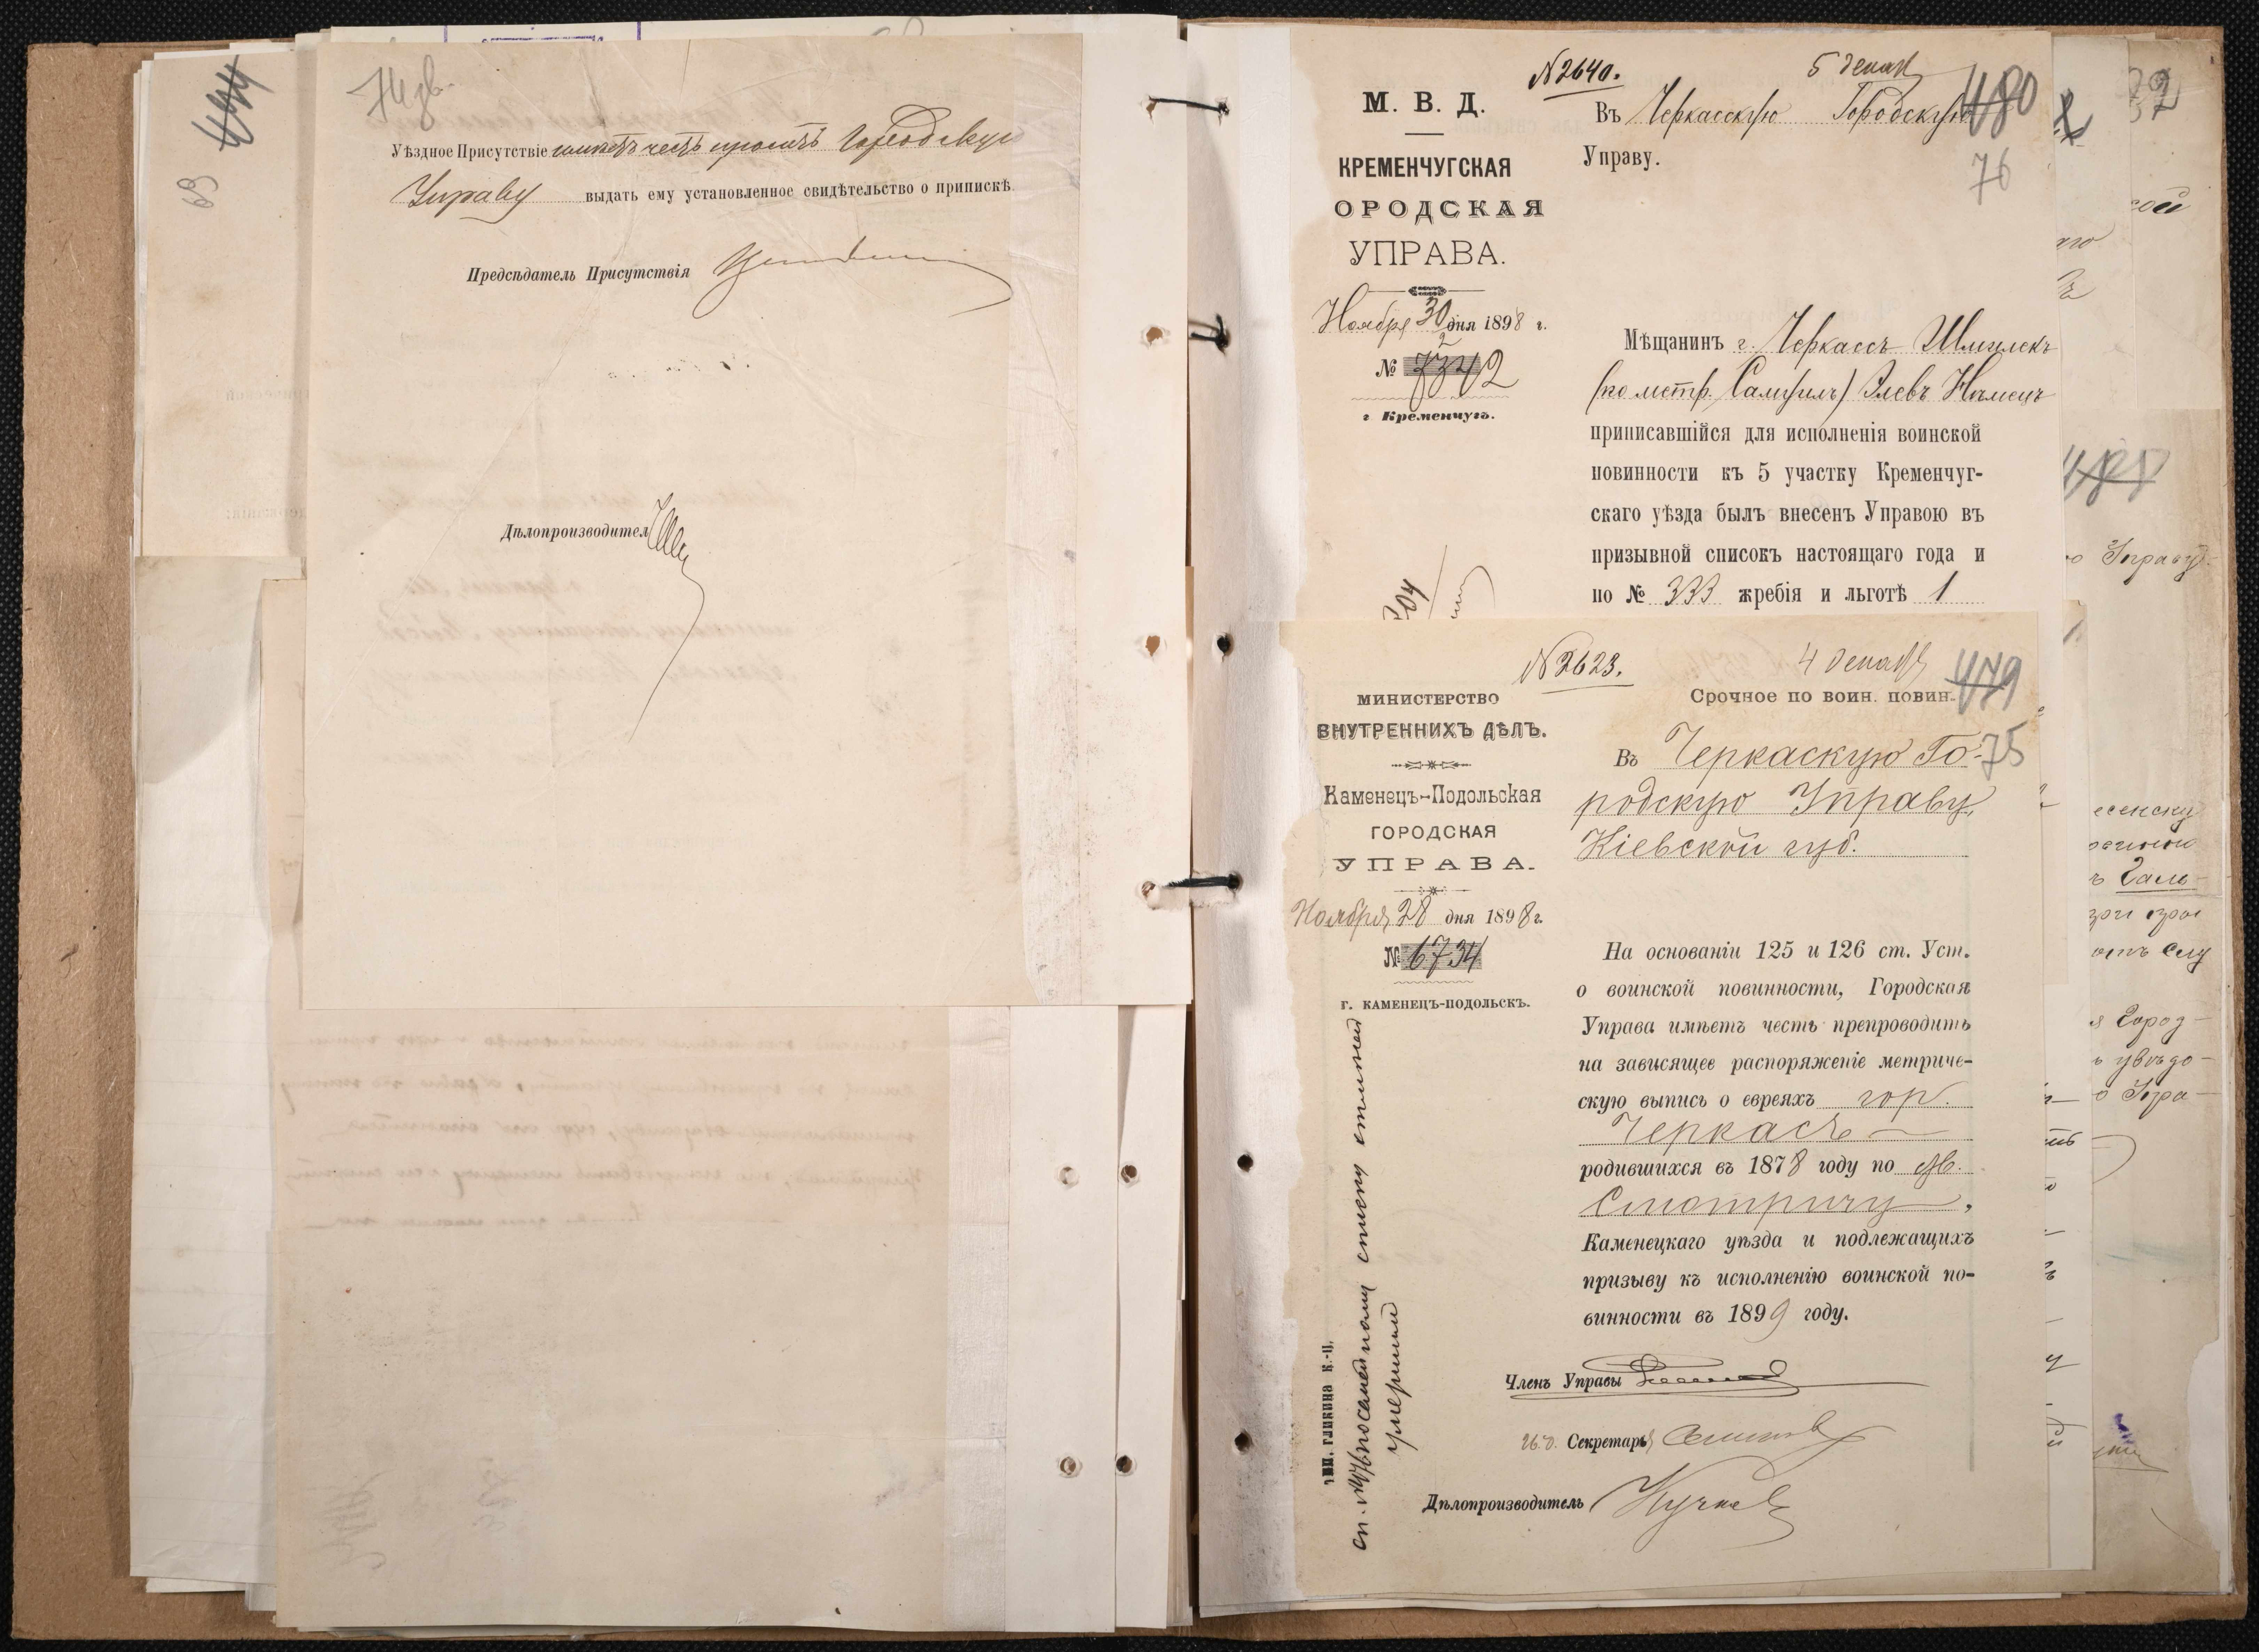 444
69
74 зв.
Уѣздное Присутствіе имѣетъ честь просить Городскую
Управу выдать ему установленное свидѣтельство о припискѣ.
Предсѣдатель Присутствія
Дѣлопроизводитель
№ 2640.
5 декаб
480
76
М. В. Д.
КРЕМЕНЧУГСКАЯ
ОРОДСКАЯ
УПРАВА.
Ноября 30 дня 1898 г.
№ 7342
г Кременчугъ.
Въ Черкасскую Городскую
Управу.
Мѣщанинъ г. Черкассъ Шмилекъ
(по метр. Самуилъ) Элевъ Нѣмецъ
приписавшійся для исполненія воинской
повинности къ 5 участку Кременчуг-
скаго уѣзда былъ внесенъ Управою въ
призывной списокъ настоящаго года и
по № 333 жребія и льготѣ 1
№ 2623.
4 декабр
479
75
МИНИСТЕРСТВО
ВНУТРЕННИХЪ ДѢЛЪ.
Каменецъ-Подольская
ГОРОДСКАЯ
УПРАВА.
Ноября 28 дня 1898 г.
№ 6734
Г. КАМЕНЕЦЪ-ПОДОЛЬСКЪ.
Срочное по воин. повин.
Въ Черкаскую Го-
родскую Управу,
Кіевской губ.
На основаніи 125 и 126 ст. Уст.
о воинской повинности, Городская
Управа имѣетъ честь препроводить
на зависящее распоряженіе метриче-
скую выпись о евреяхъ гор.
Черкасъ
родившихся въ 1878 году по м.
Смотричу,
Каменецкаго уѣзда и подлежащихъ
призыву къ исполненію воинской по-
винности въ 1899 году.
Членъ Управы
И. д. Секретаря
Дѣлопроизводитель
посемейному списку
умершій
Тип. Гликина К.-П.
Управу